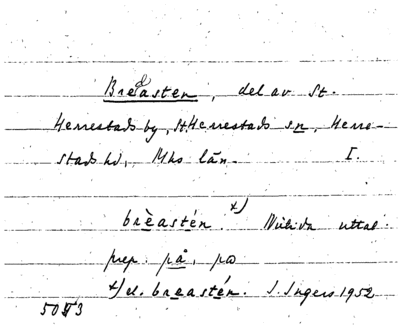 Breasten, del av St.
Herrestads by, St. Herrestads sn, Herre-
stads hd, Mhs län. I.
brèastén. x) Nutida uttal.
prep. på, pɔ
x) el. breastén. I. Ingers 1952
50 3